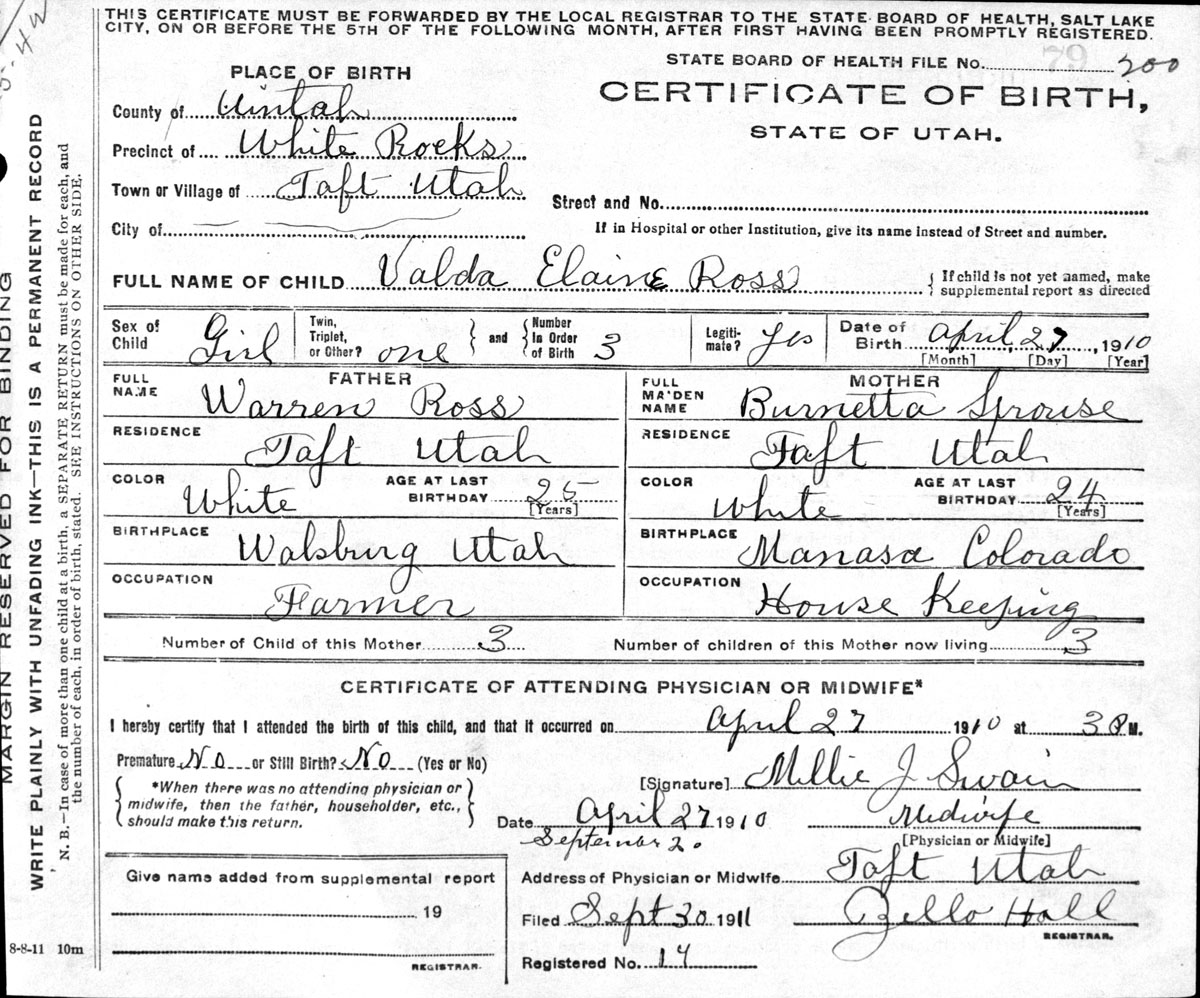 THIS CERTIFICATE MUST BE FORWARDED BY THE LOCAL REGISTRAR TO THE STATE BOARD OF HEALTH, SALT LAKE
CITY, ON OR BEFORE THE 5TH OF THE FOLLOWING MONTH, AFTER FIRST HAVING BEEN PROMPTLY REGISTERED.
STATE BOARD OF HEALTH FILE No. 79 200
PLACE OF BIRTH
CERTIFICATE OF BIRTH,
STATE OF UTAH.
County of Uintah
Precinct of White Rocks
Town or Village of Taft Utah
Street and No.
City of
If in Hospital or other Institution, give its name instead of Street and number.
FULL NAME OF CHILD Valda Elaine Ross
{ If child is not yet named, make
supplemental report as directed
Sex of Child Girl
Twin, Triplet, or Other? one } and { Number In Order of Birth 3
Legiti-mate? Yes
Date of Birth April, 27, 1910
[Month] [Day] [Year]
FATHER
FULL NAME Warren Ross
RESIDENCE Taft Utah
COLOR White AGE AT LAST BIRTHDAY 25
[Years]
BIRTHPLACE Walsburg Utah
OCCUPATION Farmer
MOTHER
FULL MAIDEN NAME Burnetta Sprouse
RESIDENCE Taft Utah
COLOR White AGE AT LAST BIRTHDAY 24
[Years]
BIRTHPLACE Manasa Colorado
OCCUPATION House Keeping
Number of Child of this Mother 3 Number of children of this Mother now living 3
CERTIFICATE OF ATTENDING PHYSICIAN OR MIDWIFE*
I hereby certify that I attended the birth of this child, and that it occurred on April 27 1910 at 3 P M.
Premature No or Still Birth? No (Yes or No)
{ *When there was no attending physician or
midwife, then the father, householder, etc.,
should make this return. }
[Signature] Millie J Swain
Date April 27 1910
September 20
Midwife
[Physician or Midwife]
Address of Physician or Midwife Taft Utah
Filed Sept 30 1911 Zello Hall
REGISTRAR.
Registered No. 14
Give name added from supplemental report
19
REGISTRAR.
8-8-11 10m
MARGIN RESERVED FOR BINDING
WRITE PLAINLY WITH UNFADING INK—THIS IS A PERMANENT RECORD
N. B.—In case of more than one child at a birth, a SEPARATE RETURN must be made for each, and
the number of each, in order of birth, stated. SEE INSTRUCTIONS ON OTHER SIDE.